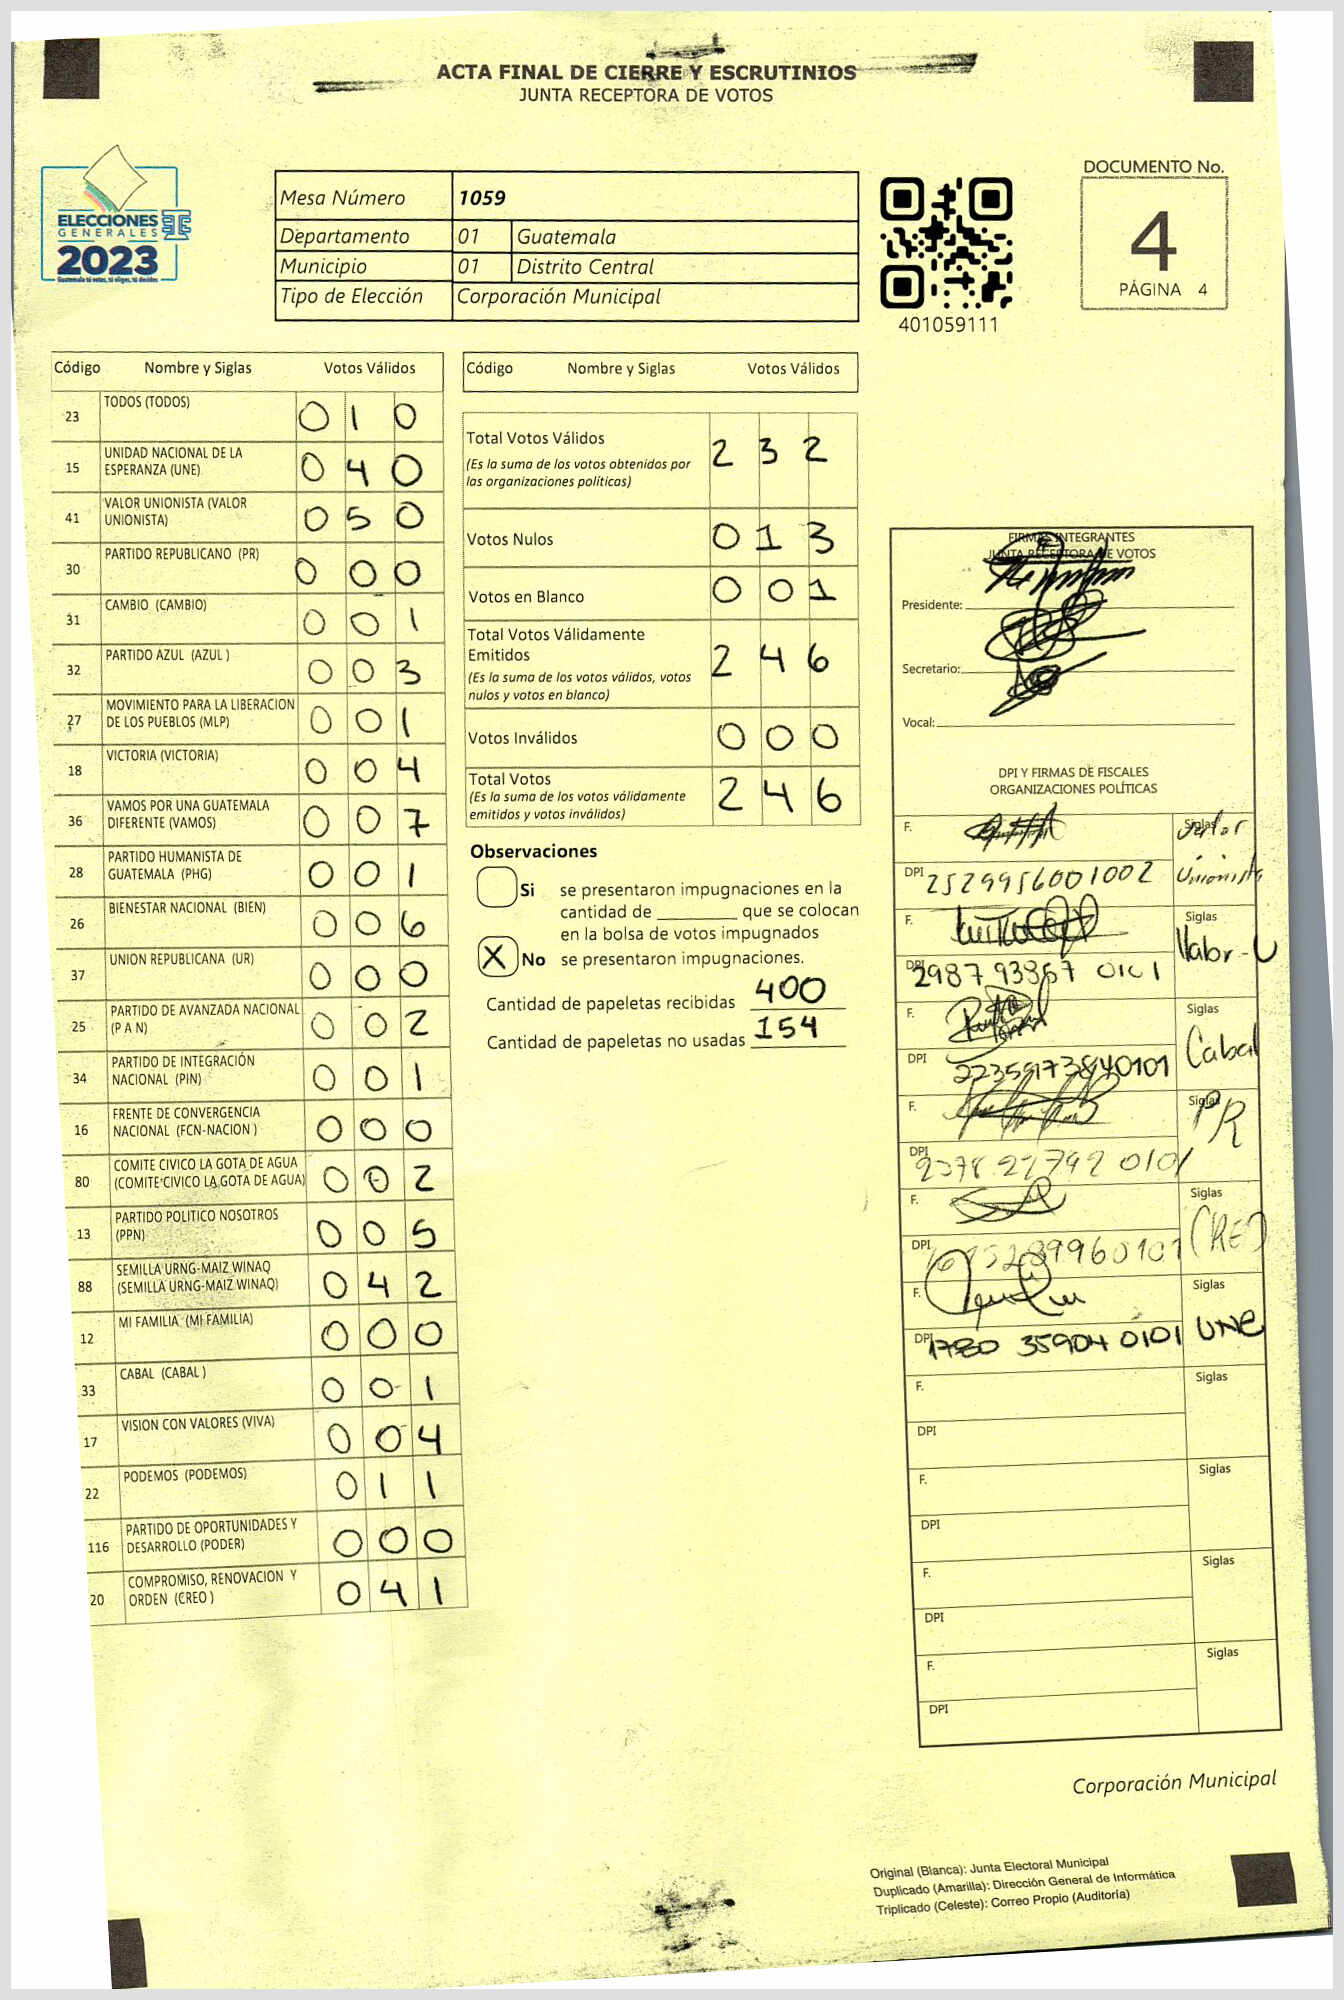 ACTA FINAL DE CIERRE Y ESCRUTINIOS
JUNTA RECEPTORA DE VOTOS
ELECCIONES
GENERALES
2023
Guatemala tú votas, tú eliges, tú decides
Mesa Número 1059
Departamento 01 Guatemala
Municipio 01 Distrito Central
Tipo de Elección Corporación Municipal
401059111
DOCUMENTO No.
4
PÁGINA 4
Código Nombre y Siglas Votos Válidos
23 TODOS (TODOS) 0 1 0
15 UNIDAD NACIONAL DE LA ESPERANZA (UNE) 0 4 0
41 VALOR UNIONISTA (VALOR UNIONISTA) 0 5 0
30 PARTIDO REPUBLICANO (PR) 0 0 0
31 CAMBIO (CAMBIO) 0 0 1
32 PARTIDO AZUL (AZUL ) 0 0 3
27 MOVIMIENTO PARA LA LIBERACION DE LOS PUEBLOS (MLP) 0 0 1
18 VICTORIA (VICTORIA) 0 0 4
36 VAMOS POR UNA GUATEMALA DIFERENTE (VAMOS) 0 0 7
28 PARTIDO HUMANISTA DE GUATEMALA (PHG) 0 0 1
26 BIENESTAR NACIONAL (BIEN) 0 0 6
37 UNION REPUBLICANA (UR) 0 0 0
25 PARTIDO DE AVANZADA NACIONAL (P A N) 0 0 2
34 PARTIDO DE INTEGRACIÓN NACIONAL (PIN) 0 0 1
16 FRENTE DE CONVERGENCIA NACIONAL (FCN-NACION ) 0 0 0
80 COMITE CIVICO LA GOTA DE AGUA (COMITE CIVICO LA GOTA DE AGUA) 0 0 2
13 PARTIDO POLITICO NOSOTROS (PPN) 0 0 5
88 SEMILLA URNG-MAIZ WINAQ (SEMILLA URNG-MAIZ WINAQ) 0 4 2
12 MI FAMILIA (MI FAMILIA) 0 0 0
33 CABAL (CABAL ) 0 0 1
17 VISION CON VALORES (VIVA) 0 0 4
22 PODEMOS (PODEMOS) 0 1 1
116 PARTIDO DE OPORTUNIDADES Y DESARROLLO (PODER) 0 0 0
20 COMPROMISO, RENOVACION Y ORDEN (CREO ) 0 4 1
Código Nombre y Siglas Votos Válidos
Total Votos Válidos 2 3 2
(Es la suma de los votos obtenidos por
las organizaciones políticas)
Votos Nulos 0 1 3
Votos en Blanco 0 0 1
Total Votos Válidamente
Emitidos 2 4 6
(Es la suma de los votos válidos, votos
nulos y votos en blanco)
Votos Inválidos 0 0 0
Total Votos 2 4 6
(Es la suma de los votos válidamente
emitidos y votos inválidos)
Observaciones
Si se presentaron impugnaciones en la
cantidad de ________ que se colocan
en la bolsa de votos impugnados
X No se presentaron impugnaciones.
Cantidad de papeletas recibidas 400
Cantidad de papeletas no usadas 154
FIRMAS INTEGRANTES
JUNTA RECEPTORA DE VOTOS
Presidente:
Secretario:
Vocal:
DPI Y FIRMAS DE FISCALES
ORGANIZACIONES POLÍTICAS
F. Siglas Valor
DPI 2529956001002 Unionista
F. Siglas
DPI 2987 93867 0101 Valor-U
F. Siglas
DPI Cabal
F. Siglas PR
DPI
F. Siglas
DPI
F. Siglas
DPI 1780 35904 0101 UNE
F. Siglas
DPI
F. Siglas
DPI
F. Siglas
DPI
F. Siglas
DPI
Corporación Municipal
Original (Blanca): Junta Electoral Municipal
Duplicado (Amarilla): Dirección General de Informática
Triplicado (Celeste): Correo Propio (Auditoría)